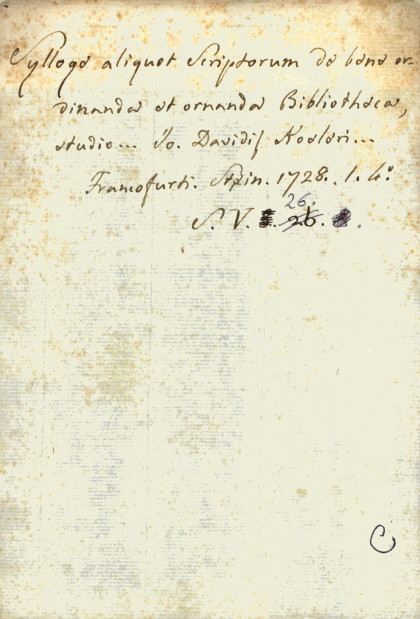 Sylloge aliquot Scriptorum de bene or-
dinanda et ornanda Bibliotheca,
studio... Jo. Davidis Koeleri...
Francofurti. Stein. 1728. 1. 4°.
26.
S. V. 26.
C